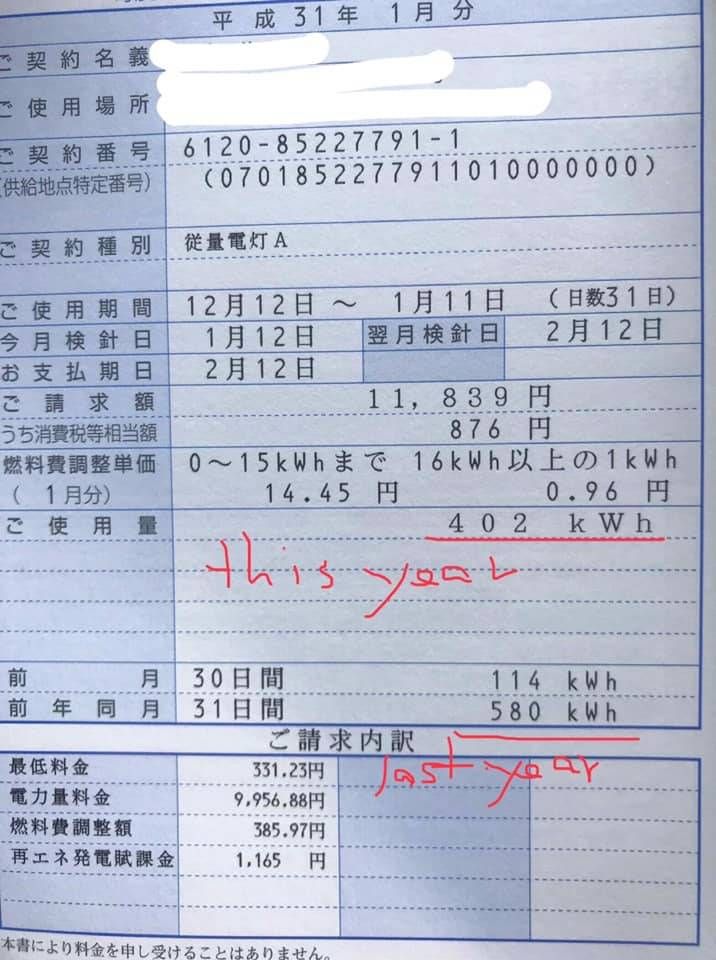 平成31年 1月分
ご契約名義
ご使用場所
ご契約番号 6120-85227791-1
(供給地点特定番号) (0701852277911010000000)
ご契約種別 従量電灯A
ご使用期間 12月12日 ~ 1月11日 (日数31日)
今月検針日 1月12日 翌月検針日 2月12日
お支払期日 2月12日
ご請求額 11,839円
うち消費税等相当額 876円
燃料費調整単価 0~15kWhまで 16kWh以上の1kWh
(1月分) 14.45円 0.96円
ご使用量 402 kWh
this year
前月 30日間 114 kWh
前年同月 31日間 580 kWh
ご請求内訳
last year
最低料金 331.23円
電力量料金 9,956.88円
燃料費調整額 385.97円
再エネ発電賦課金 1,165 円
本書により料金を申し受けることはありません。